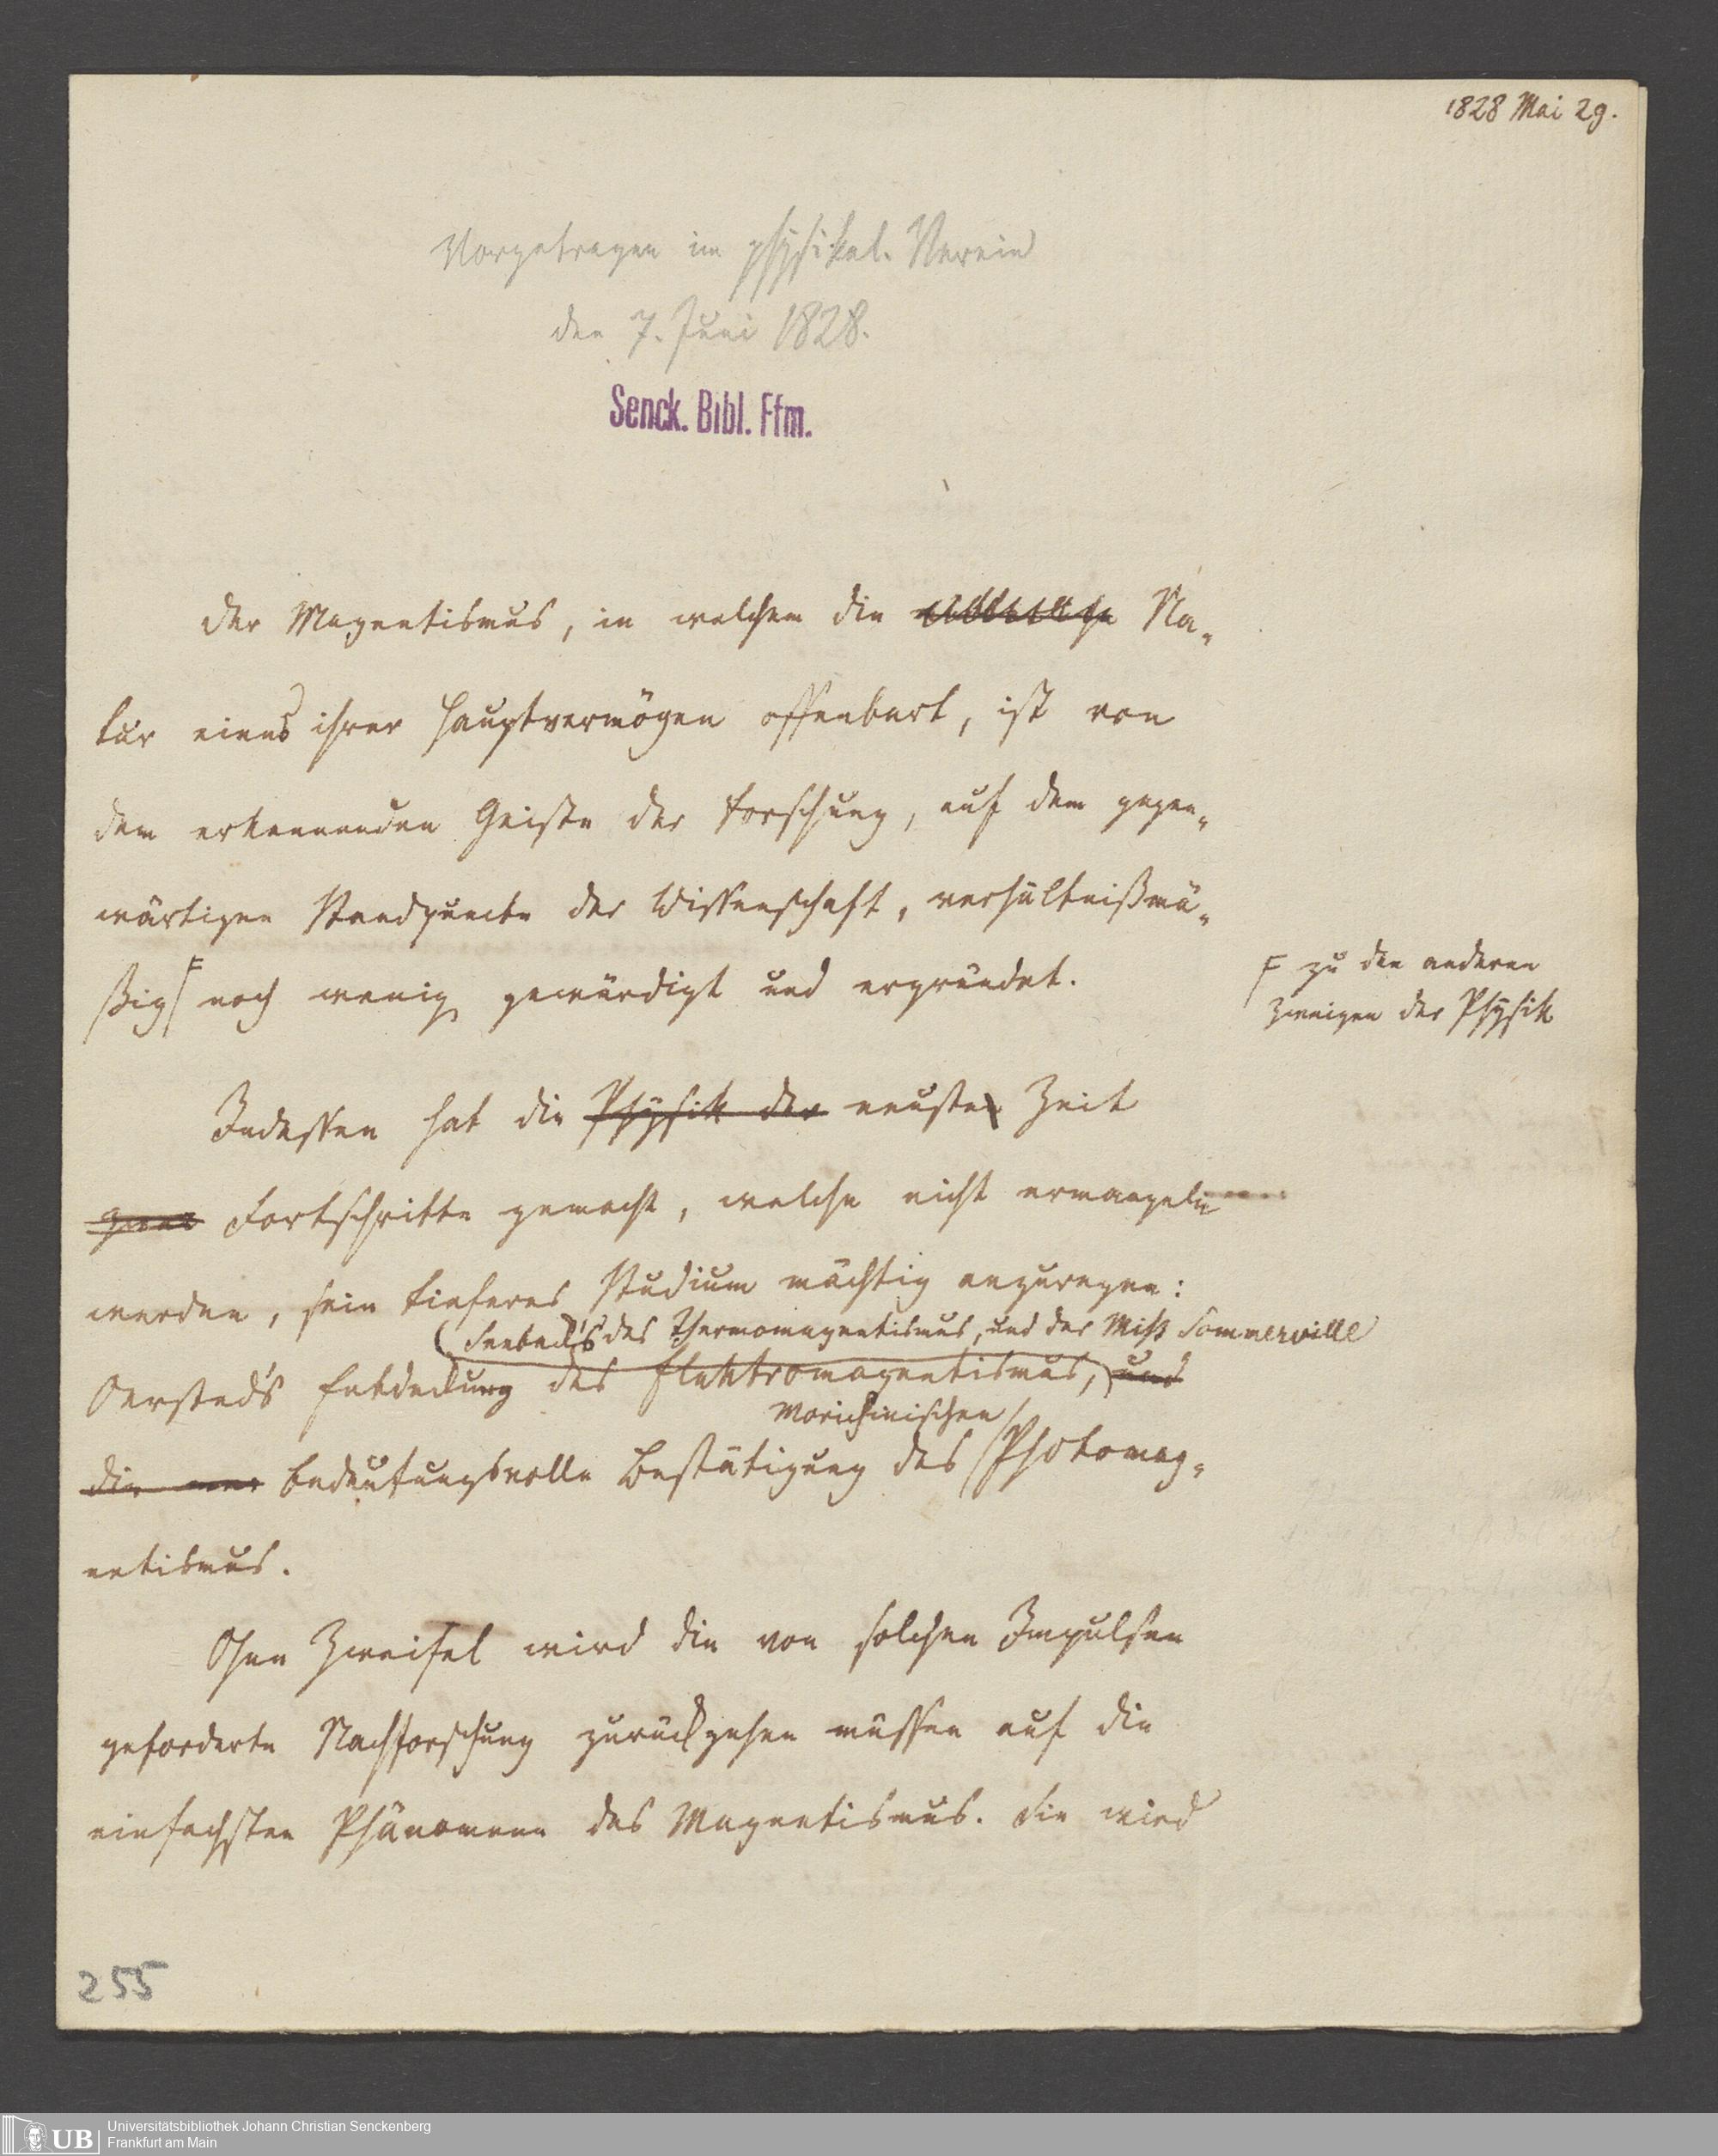 1828 Mai 29.
Vorgetragen im physikal. Verein
den 7. Juni 1828.
Senck. Bibl. Ffm.
Der Magnetismus, in welchem die Na-
tur eines ihrer Hauptvermögen offenbart, ist von
dem erkennenden Geiste der Forschung, auf dem gegen-
wärtigen Standpuncte der Wissenschaft, verhältnißmä-
ßig noch wenig gewürdigt und ergründet.
F zu den anderen
Zweigen der Physik
Indessen hat die Physik der neuste Zeit
Fortschritte gemacht, welche nicht ermangeln
werden, sein tieferes Studium mächtig anzuregen:
Seebeck's des Thermomagnetismus, und der Miß Sommerville
Oersted's Entdeckung des Elektromagnetismus, und
Morichinischen
die bedeutungsvolle Bestätigung des Photomag-
netismus.
Ohne Zweifel wird die von solchen Impulsen
geforderte Nachforschung zurückgehen müssen auf die
einfachsten Phänomene des Magnetismus. Sie wird
255
UB
Universitätsbibliothek Johann Christian Senckenberg
Frankfurt am Main